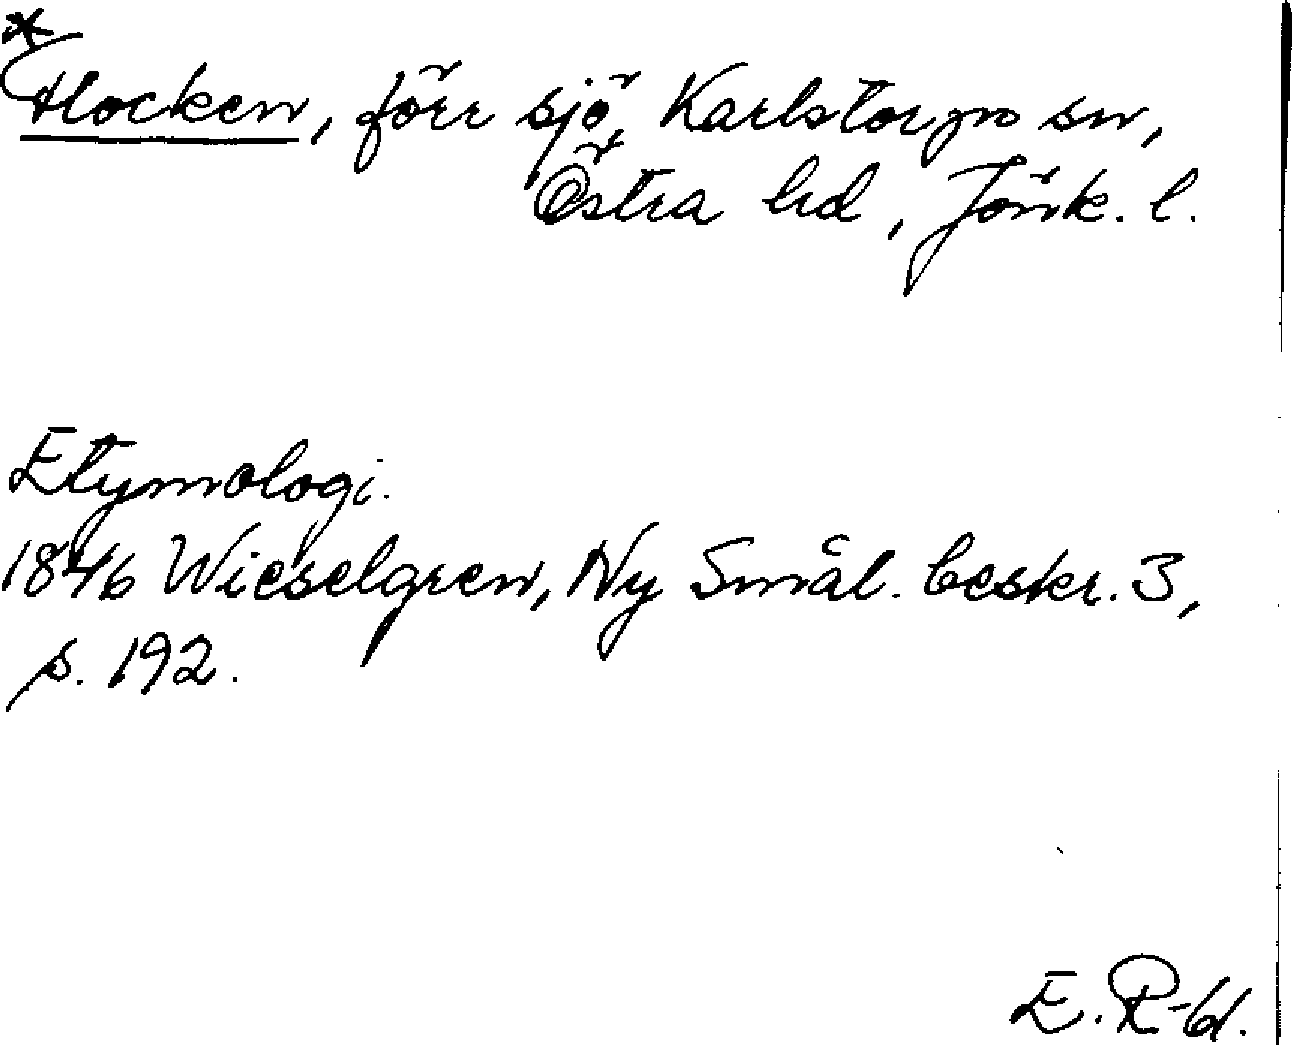 *
Hocken, förr sjö, Karlstorps sn,
Östra hd, Jönk. l.
Etymologi.
1846 Wieselgren, Ny Smål. beskr. 3,
s. 192.
E. R-bl.